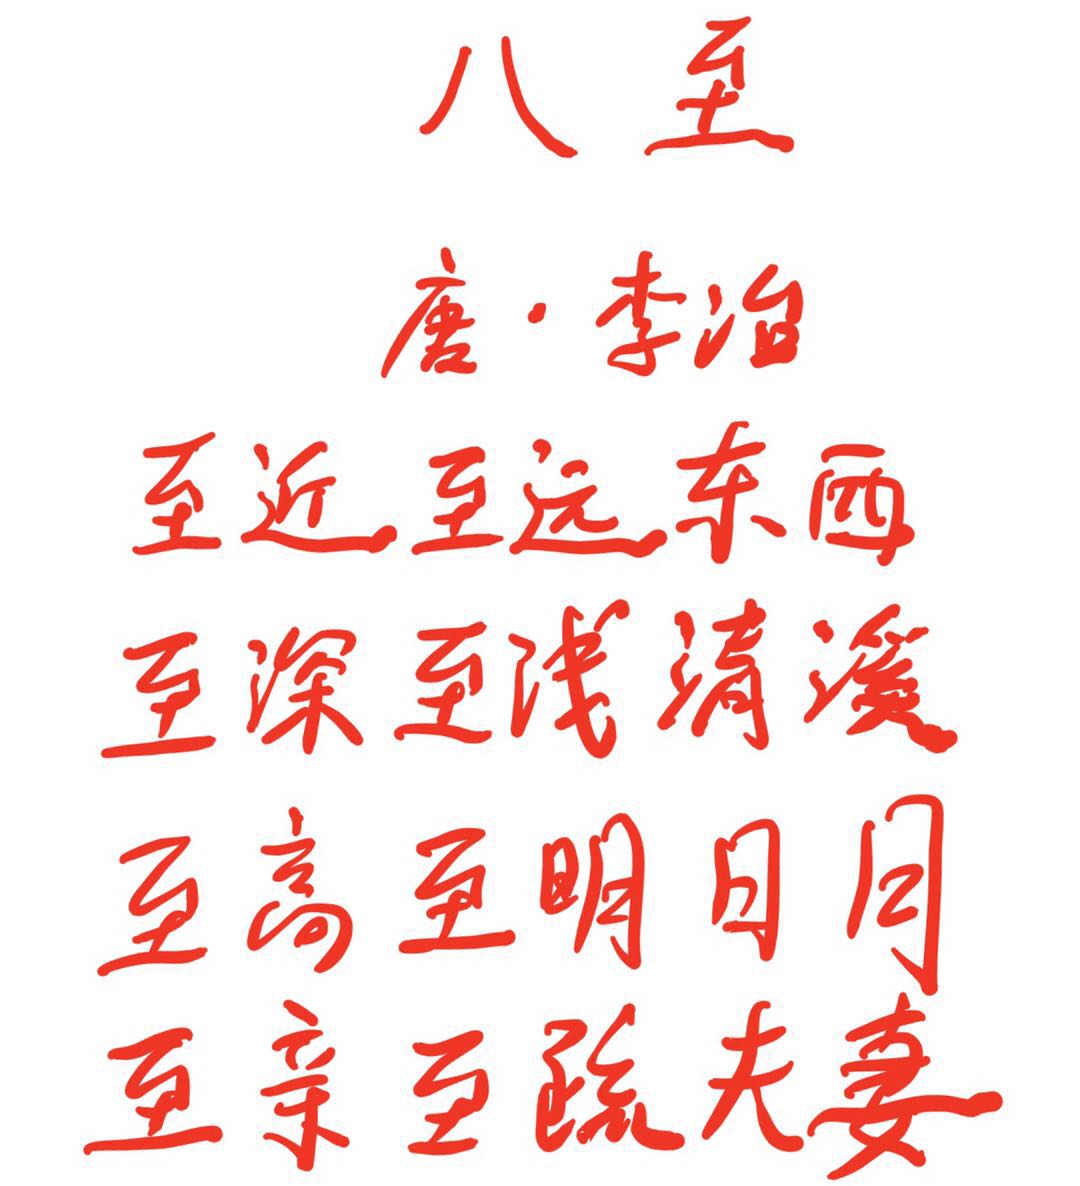 八至
唐·李冶
至近至远东西
至深至浅清溪
至高至明日月
至亲至疏夫妻